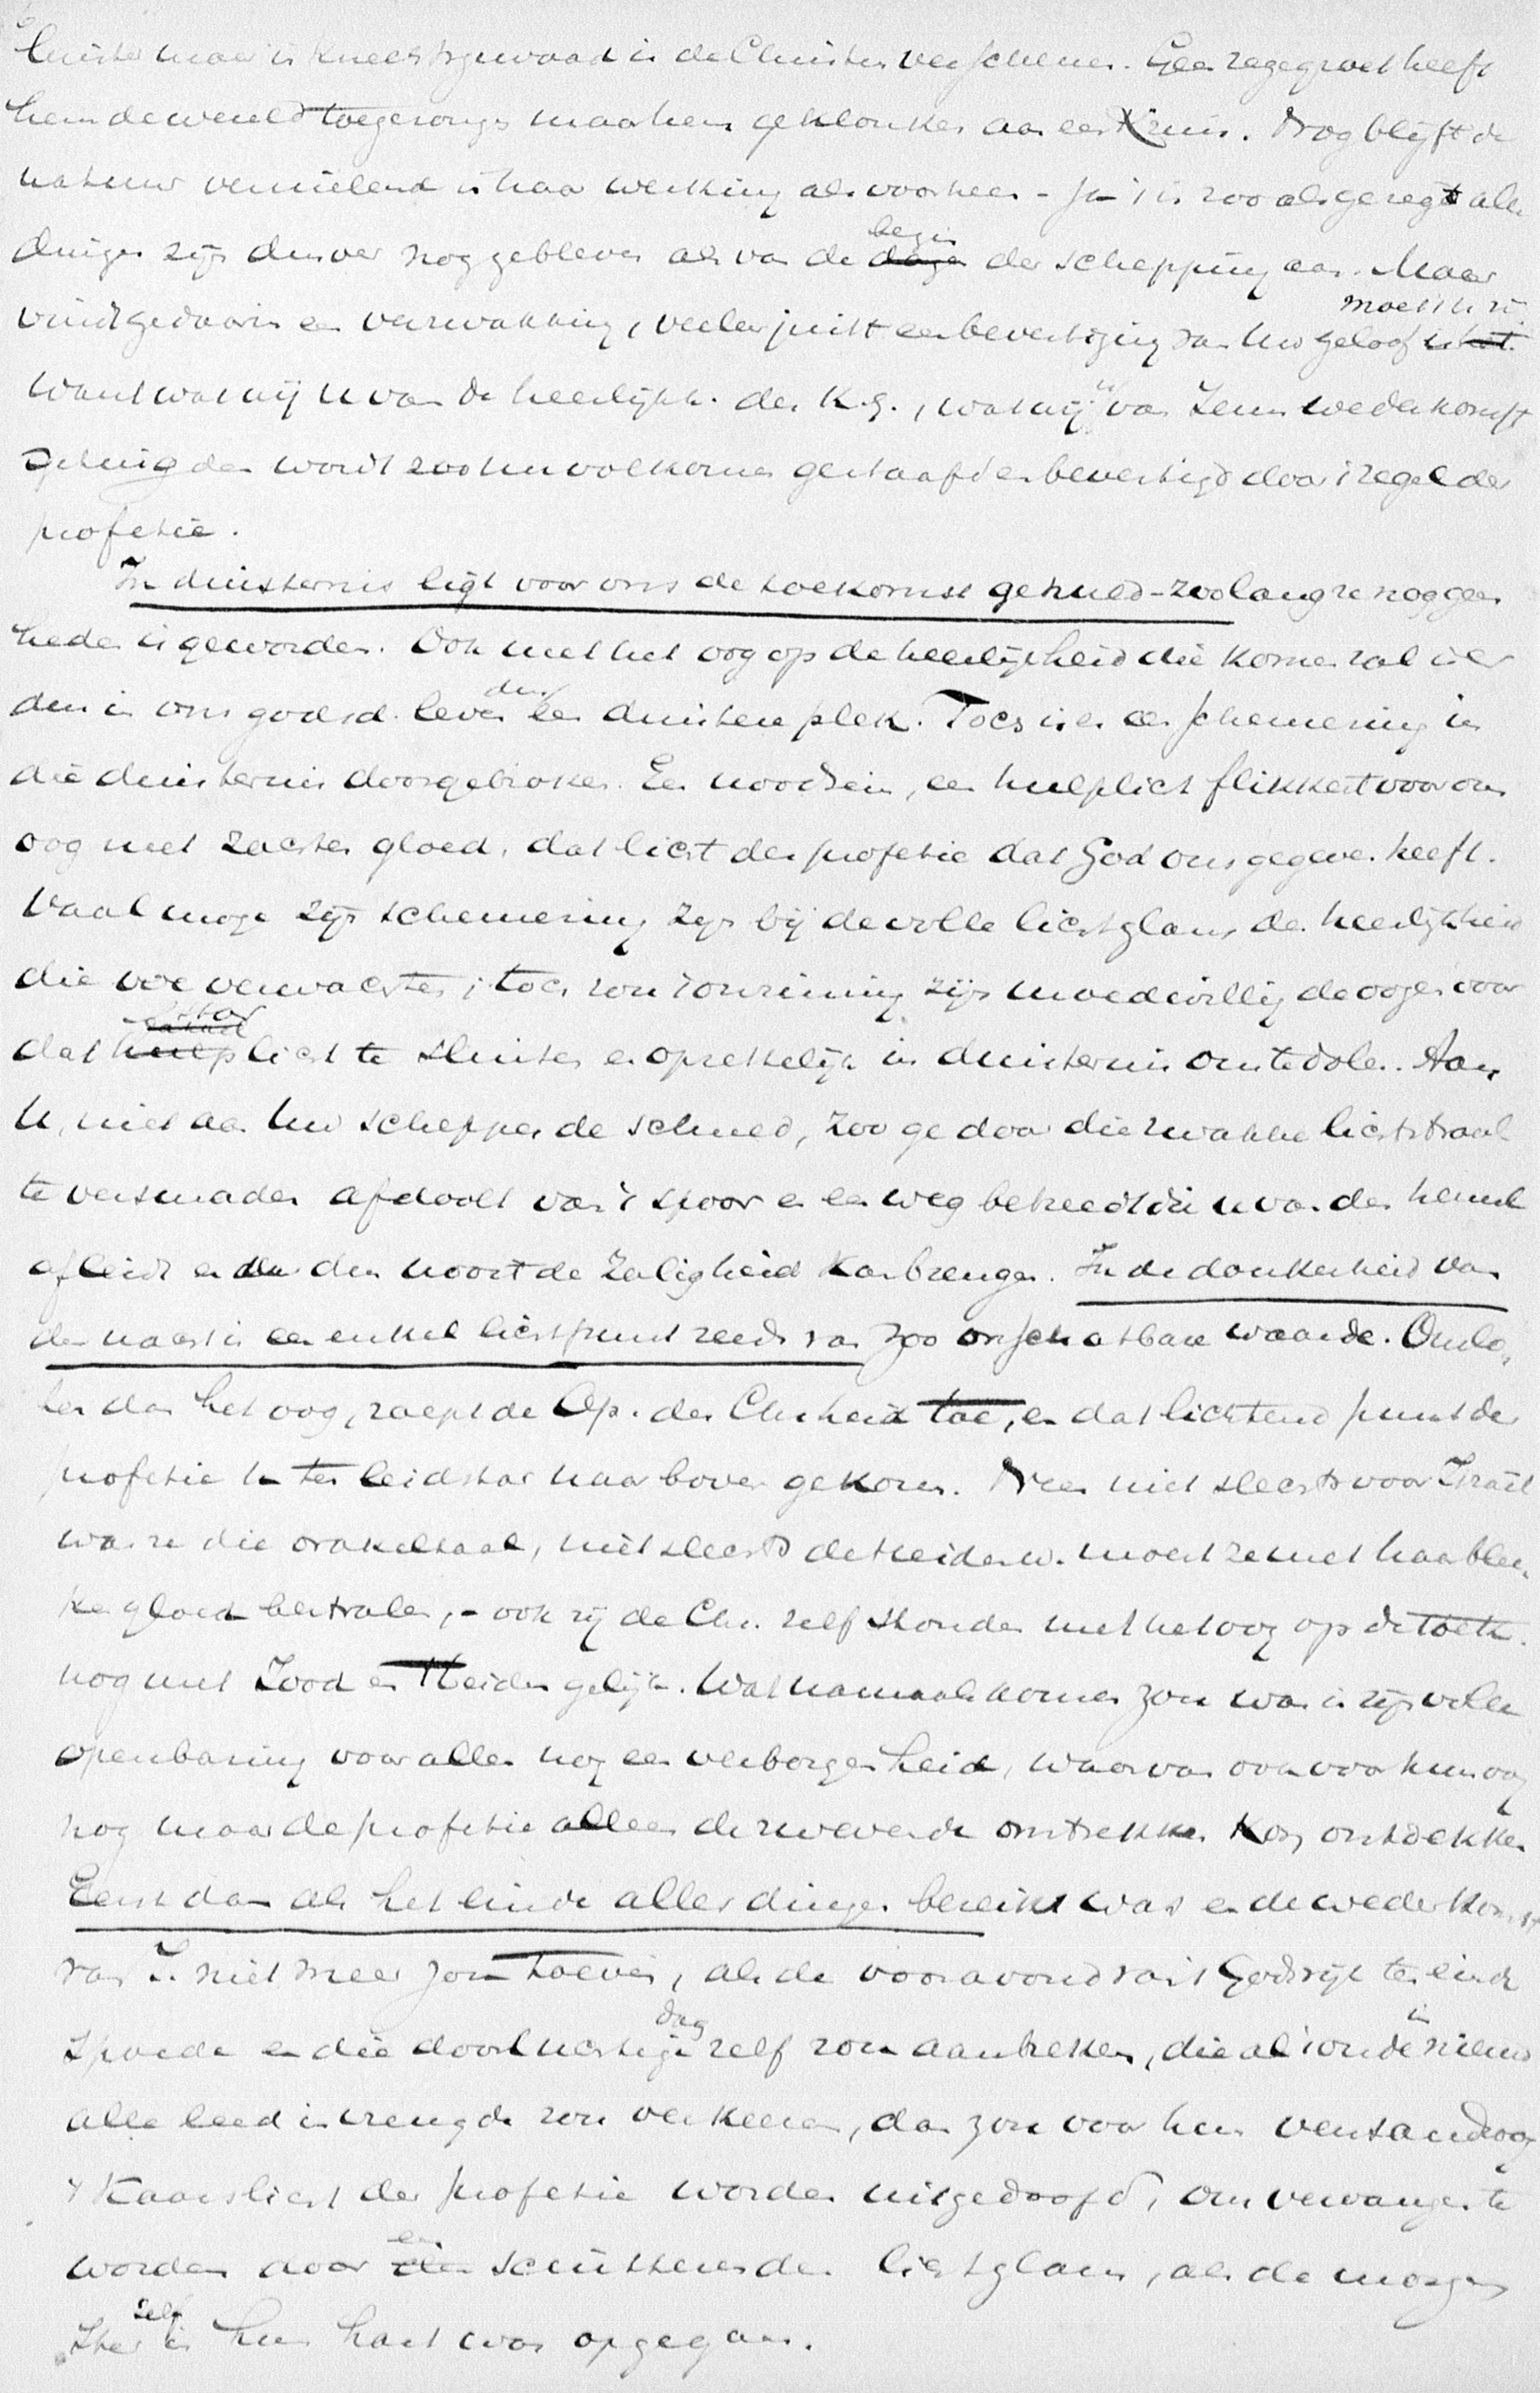 6
luister maar in knechtsgewaad is de Christus verschenen. Geen zegegroet heeft
hem de wereld toegezongen maar hem geklonken aan een Kruis. Nog blijft de
natuur vernielend in haar werking als voorheen - Ja 't is zoo als gezegd alle
dingen zijn dusver nog gebleven als van de begin der schepping aan. Maar
vind gedaarin een verzwakking, veeleer juist een bevestiging van Uw geloof moest h zij
Want wat wij U van de heerlijkh. des K.g., wat wij U van Jezus wederkomst
getuigden wordt zoo nu volkomen gestaafd en bevestigd door 't zegel der
profetie.
In duisternis ligt voor ons de toekomst gehuld - zoolang ze nog geen
heden is geworden. Ook met het oog op de heerlijkheid die komen zal is er
dus in ons godsd. leven dus een duistere plek. Toch is er een schemering in
die duisternis doorgebroken. Een noodsein, een hulplicht flikkert voor ons
oog met zachten gloed, dat licht der profetie dat God ons gegeven heeft.
Vaal moge zijn schemering zijn bij de volle lichtglans der heerlijkheid
die we verwachten; toch zou 't onzinnig zijn moedwillig de oogen voor
dat licht te sluiten en opzettelijk in duisternis om te dolen. Aan
U, niet aan Uw schepper de schuld, zoo ge door die zwakke lichtstraal
te versmaden afdoolt van 't spoor en een weg betreedt die u van den hemel
afleidt en dus nooit de zaligheid kan brengen. In de donkerheid van
den nacht is een enkel lichtpunt reeds van zoo onschatbare waarde. Ontslo-
ten dan het oog, roept de Ap. der Chr.heid toe, en dat lichtend punt der
profetie U ter leidstar naar boven gekozen. Neen niet slechts voor Israël
was ze die orakeltaal, niet slechts de Heidenw. moest ze met haar blee-
ken gloed bestralen, - ook zij de Chr. zelf stonden met het oog op de toek.
nog met Jood en Heiden gelijk. Wat namaals komen zou was in zijn volle
openbaring voor allen nog een verborgenheid, waarvan ook voor hun oog
nog maar de profetie alleen de zwevende omtrekken kon ontdekken
Eerst dan als het einde aller dingen bereikt was en de wederkomst
van J. niet meer zou toeven, als de vooravond van 't Godsrijk ten einde
spoedde en die doorluchtige dag zelf zou aanbreken, die al 't oude in nieuw
alle leed in vreugde zou verkeeren, dan zou voor hun verstandoog
't Kaarslicht der profetie worden uitgedoofd, om vervangen te
worden door een schitterenden lichtglans, als de morgen
ster zelf in hun hart was opgegaan.